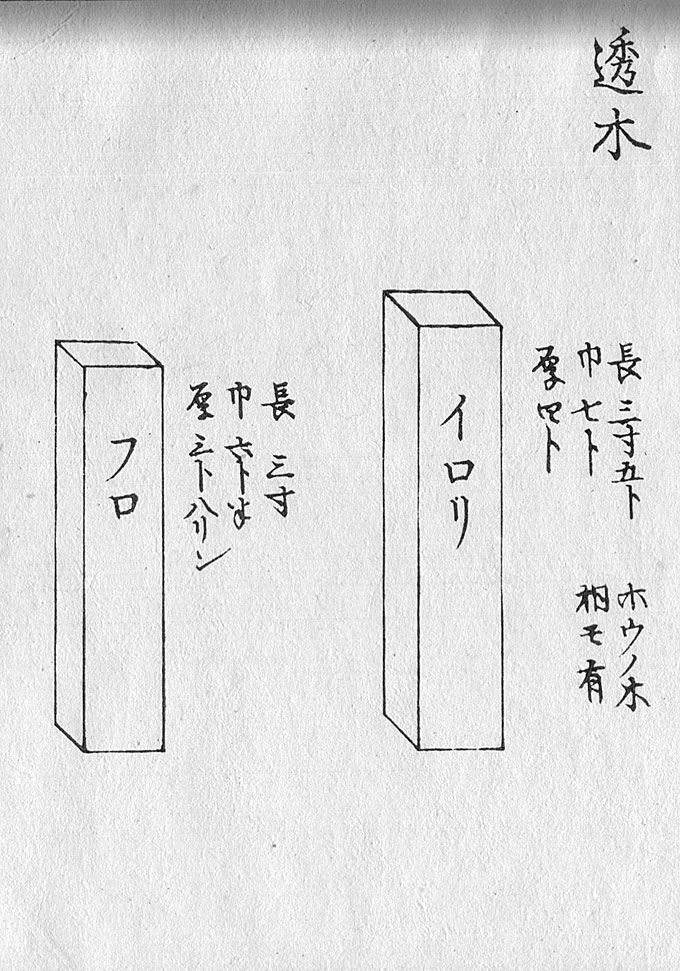 透木
長 三寸五ト ホウノ木
巾 七ト 桐モ有
厚 四ト
イロリ
長 三寸
巾 六ト半
厚 三ト八リン
フロ